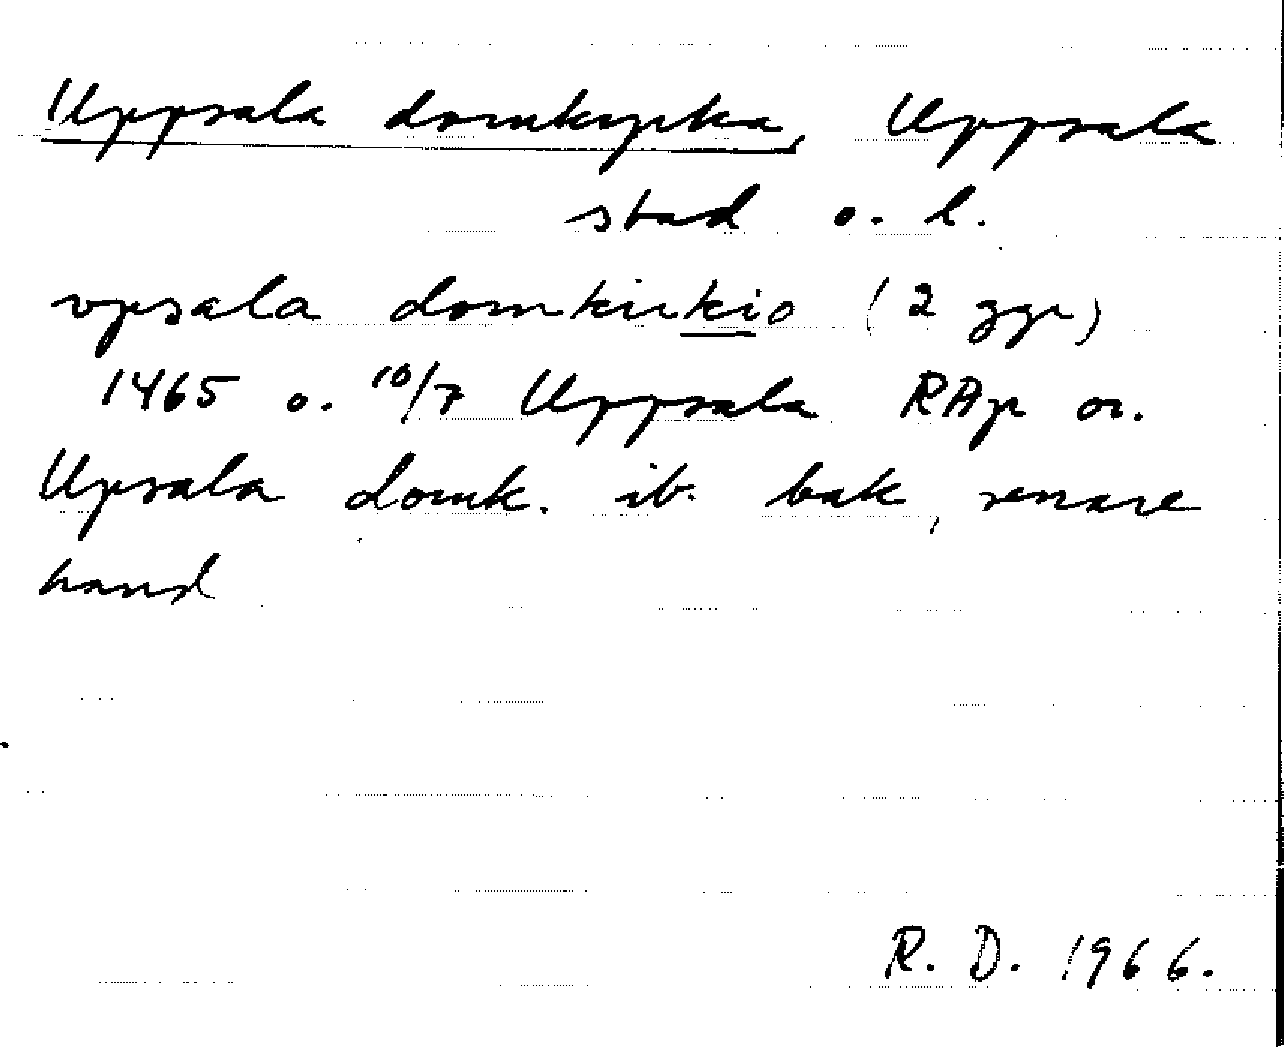 Uppsala domkyrka, Uppsala
stad o. l.
vpsala domkirkio (2 ggr)
1465 o. 10/7 Uppsala RAp or.
Upsala domk. ib. bak, senare
hand
R. D. 1966.